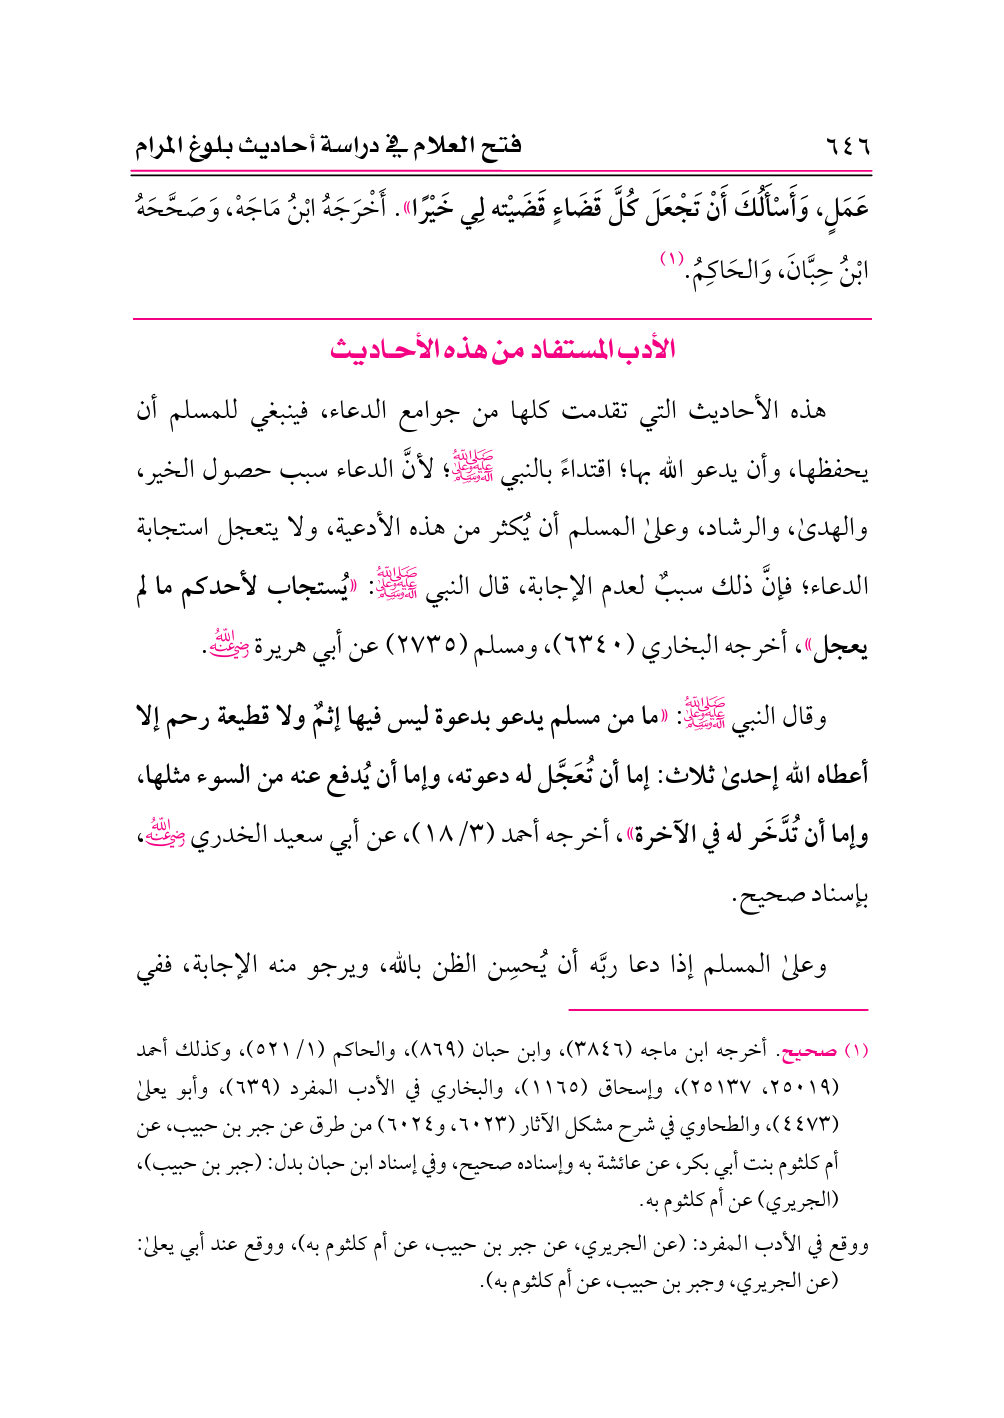 ٦٤٦ فتح العلام في دراسة أحاديث بلوغ المرام
عَمَلٍ، وَأَسْأَلُكَ أَنْ تَجْعَلَ كُلَّ قَضَاءٍ قَضَيْته لِي خَيْرًا». أَخْرَجَهُ ابْنُ مَاجَهْ، وَصَحَّحَهُ
ابْنُ حِبَّانَ، وَالحَاكِمُ.(١)
الأدب المستفاد من هذه الأحاديث
هذه الأحاديث التي تقدمت كلها من جوامع الدعاء، فينبغي للمسلم أن
يحفظها، وأن يدعو الله بها؛ اقتداءً بالنبي ﷺ؛ لأنَّ الدعاء سبب حصول الخير،
والهدىٰ، والرشاد، وعلىٰ المسلم أن يُكثر من هذه الأدعية، ولا يتعجل استجابة
الدعاء؛ فإنَّ ذلك سببٌ لعدم الإجابة، قال النبي ﷺ: «يُستجاب لأحدكم ما لم
يعجل»، أخرجه البخاري (٦٣٤٠)، ومسلم (٢٧٣٥) عن أبي هريرة رضي الله عنه.
وقال النبي ﷺ: «ما من مسلم يدعو بدعوة ليس فيها إثمٌ ولا قطيعة رحم إلا
أعطاه الله إحدىٰ ثلاث: إما أن تُعَجَّل له دعوته، وإما أن يُدفع عنه من السوء مثلها،
وإما أن تُدَّخَر له في الآخرة»، أخرجه أحمد (٣/ ١٨)، عن أبي سعيد الخدري رضي الله عنه،
بإسناد صحيح.
وعلىٰ المسلم إذا دعا ربَّه أن يُحسِن الظن بالله، ويرجو منه الإجابة، ففي
(١) صحيح. أخرجه ابن ماجه (٣٨٤٦)، وابن حبان (٨٦٩)، والحاكم (١/ ٥٢١)، وكذلك أحمد
(٢٥٠١٩، ٢٥١٣٧)، وإسحاق (١١٦٥)، والبخاري في الأدب المفرد (٦٣٩)، وأبو يعلىٰ
(٤٤٧٣)، والطحاوي في شرح مشكل الآثار (٦٠٢٣، و٦٠٢٤) من طرق عن جبر بن حبيب، عن
أم كلثوم بنت أبي بكر، عن عائشة به وإسناده صحيح، وفي إسناد ابن حبان بدل: (جبر بن حبيب)،
(الجريري) عن أم كلثوم به.
ووقع في الأدب المفرد: (عن الجريري، عن جبر بن حبيب، عن أم كلثوم به)، ووقع عند أبي يعلىٰ:
(عن الجريري، وجبر بن حبيب، عن أم كلثوم به).